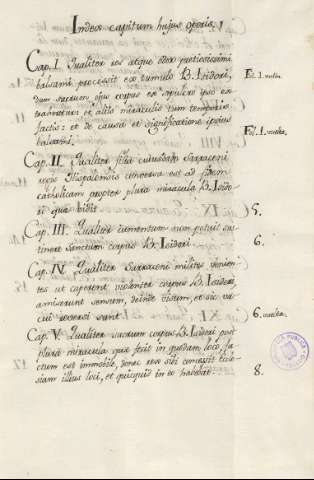 Index capitum hujus operis.
Cap. I. Qualiter ros atque odor pretiosissimi
balsami processit ex tumulo B. Isidori,
dum sacrum ejus corpus ex sepulcro suo ex-
et aliis miraculis tum temporis
factis: et de causa et significatione ipsius
balsami.
Cap. II. Qualiter filia cujusdam Sarraceni
regis Hispalensis conversa est ad fidem
catholicam propter plura miracula B. Isido-
ri quæ vidit.
5.
Cap. III. Qualiter jumentum non potuit sus-
tinere sanctum corpus B. Isidori.
6.
Cap. IV. Qualiter Sarraceni milites venien-
tes ut caperent violenter corpus B. Isidori,
amiserunt sensum, deinde visum, et sic va-
cui reversi sunt.
6.
Cap. V. Qualiter sacrum corpus B. Isidori post
plura miracula quæ fecit in quodam loco, fa-
ctum est immobile, donec rex sibi concessit Eccle-
siam illius loci, et quicquid in eo habebat.
8.